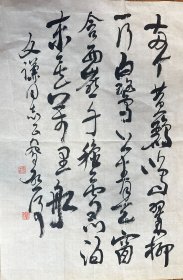 两个黄鸝鸣翠柳
一行白鷺上青天窗
含西岭千秋雪门泊
东吴万里船
同志正